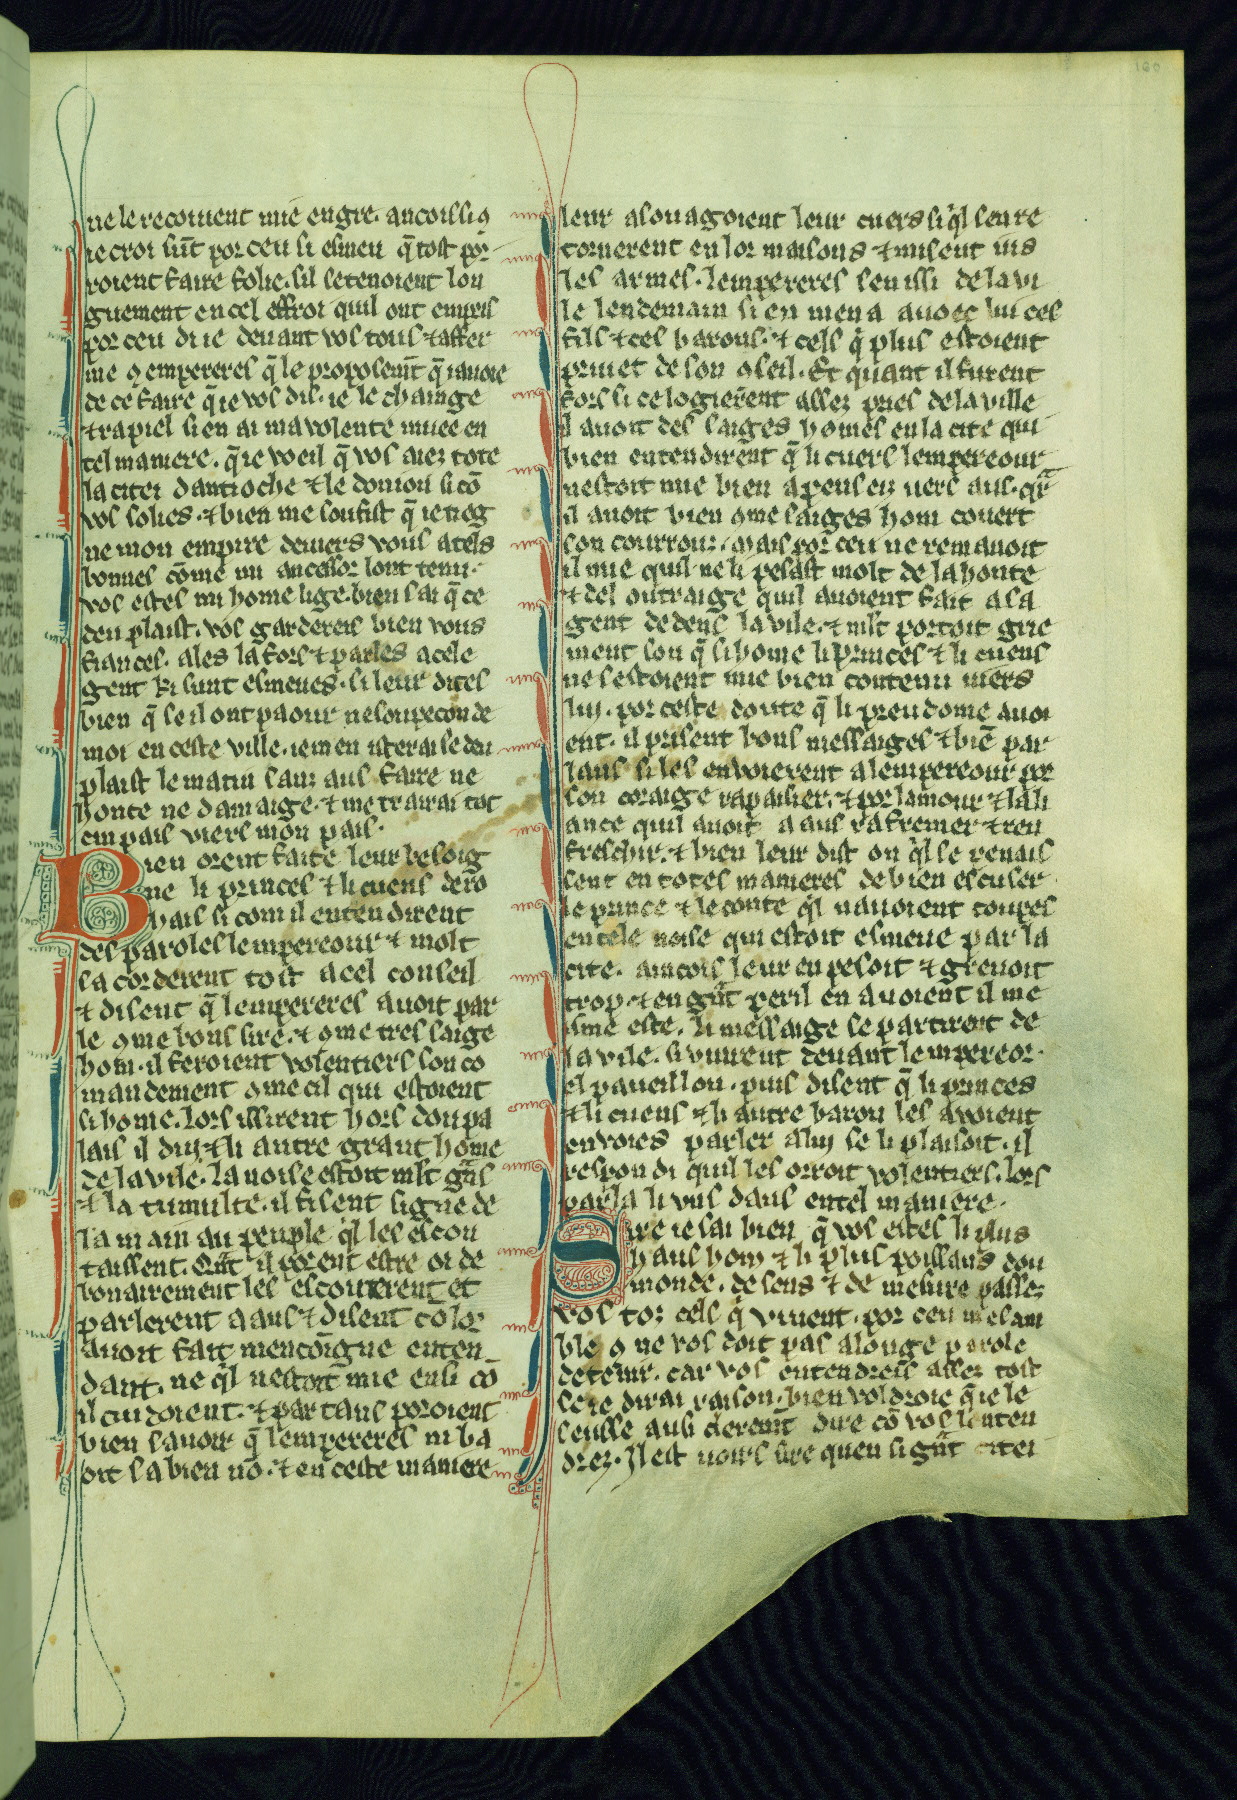 ne le recoiuent mie en gre. ancois si ꝯ
ie croi sūt por ceu si esmeu q̄ tost por
roient faire folie. sil se tenoient lon
guement en cel effroi quil ont empris
por ceu di ie deuant vos tous ⁊ affer
me ꝯ empereres q̄ le proposemt̄ q̄ iauoie
de ce faire q̄ ie vos dis. ie le chainge
⁊ rapiel si en ai ma volente muee en
tel maniere. q̄ ie woeil q̄ vos aiez tote
la citei dantioche ⁊ le donion si cō
vos solies. ⁊ bien me soufist q̄ ie tieg
ne mon empire deuers vous a tels
bonnes cōme mi ancessor lont tenu.
vos estes mi home lige. bien sai q̄ ce
deu plaist. vos gardereis bien vous
fiances. ales la fors ⁊ parles a cele
gent ki sunt esmeues. si leur dites
bien q̄ se il ont paour ne soupecon de
moi en ceste ville. ie men isterai se deu
plaist le matin sauz aus faire ne
honte ne damaige. ⁊ me trairai tot
em pais viers mon pais.
Bien orent faite leur besoig
ne li princes ⁊ li cuens de ro
hais si com il entendirent
des paroles lempereour ⁊ molt
sacorderent tost a cel conseil
⁊ disent q̄ lempereres auoit par
le ꝯme bons sire. ⁊ ꝯme tres saige
hom. il feroient volentiers son co
mandement ꝯme cil qui estoient
si home. lors issirent hors dou pa
lais il dui ⁊ li autre grant home
de la vile. la noise estoit ml̄t grās
⁊ la tumulte. il fisent signe de
la main au peuple ql̄ les escou
taissent. Qn̄t il porent estre oi de
bonairement les escouterent et
parlerent a aus ⁊ disent color
auoit fait mencoigne enten
dant. ne ql̄ nestoit mie ensi cō
il cuidoient. ⁊ par tans poroient
bien sauoir q̄ lempereres ni ba
oit sa bien nō. ⁊ en ceste maniere
leur asouagoient leur cuers si ql̄ sen re
tornerent en lor maisons ⁊ misent ius
les armes. lempereres sen issi de la vi
le lendemain si en mena auoec lui ces
fils ⁊ ces barons. ⁊ cels q̄ plus estoient
priuet de son ꝯseil. Et quant il furent
fors si ce logierent assez pries de la ville
il auoit des saiges homes en la cite qui
bien entendirent q̄ li cuers lempereour
nestoit mie bien apenseiz uers aus. qr̄
il auoit bien ꝯme saiges hom couert
son courrouz. mais por ceu ne remanoit
il mie quil ne li pesast molt de la honte
⁊ del outraige quil auoient fait a sa
gent dedens la vile. ⁊ ml̄t portoit grie
ment son q̄ si home li princes ⁊ li cuens
ne sestoient mie bien contenu uiers
lui. por ceste doute q̄ li preudome auoi
ent. il prisent bons messaiges ⁊ biē par
lans si les enuoierent a lempereour por
son coraige rapaisier. ⁊ por lamour ⁊ la li
ance quil auoit a aus rafremer ⁊ ren
freschir. ⁊ bien leur dist on ql̄ se penais
sent en totes manieres de bien escuser
le prince ⁊ le conte ql̄ nauoient coupes
en tele noise qui estoit esmeue par la
cite. aincois leur en pesoit ⁊ greuoit
trop. ⁊ en grāt peril en auoient il me
isme este. li messaige se partirent de
la vile. si vinrent deuant lempereor.
el paueillon. puis disent q̄ li princes
⁊ li cuens ⁊ li autre baron les auoient
enuoies parler a lui se li plaisoit. il
respondi quil les orroit volentiers. lors
parla li vns dans en tel maniere.
Sire ie sai bien q̄ vos estes li plus
haus hom ⁊ li plus poissans dou
monde. de sens ⁊ de mesure passez
vos toz cels q̄ viuent. por ceu mesam
ble ꝯ ne vos doit pas a longe parole
detenir. car vos entendreis assez tost
se ie dirai raison. bien voldroie q̄ ie le
seusse ausi cleremt̄ dire cō vos lenten
drez. Il est uoirs sire quen si grāt citei